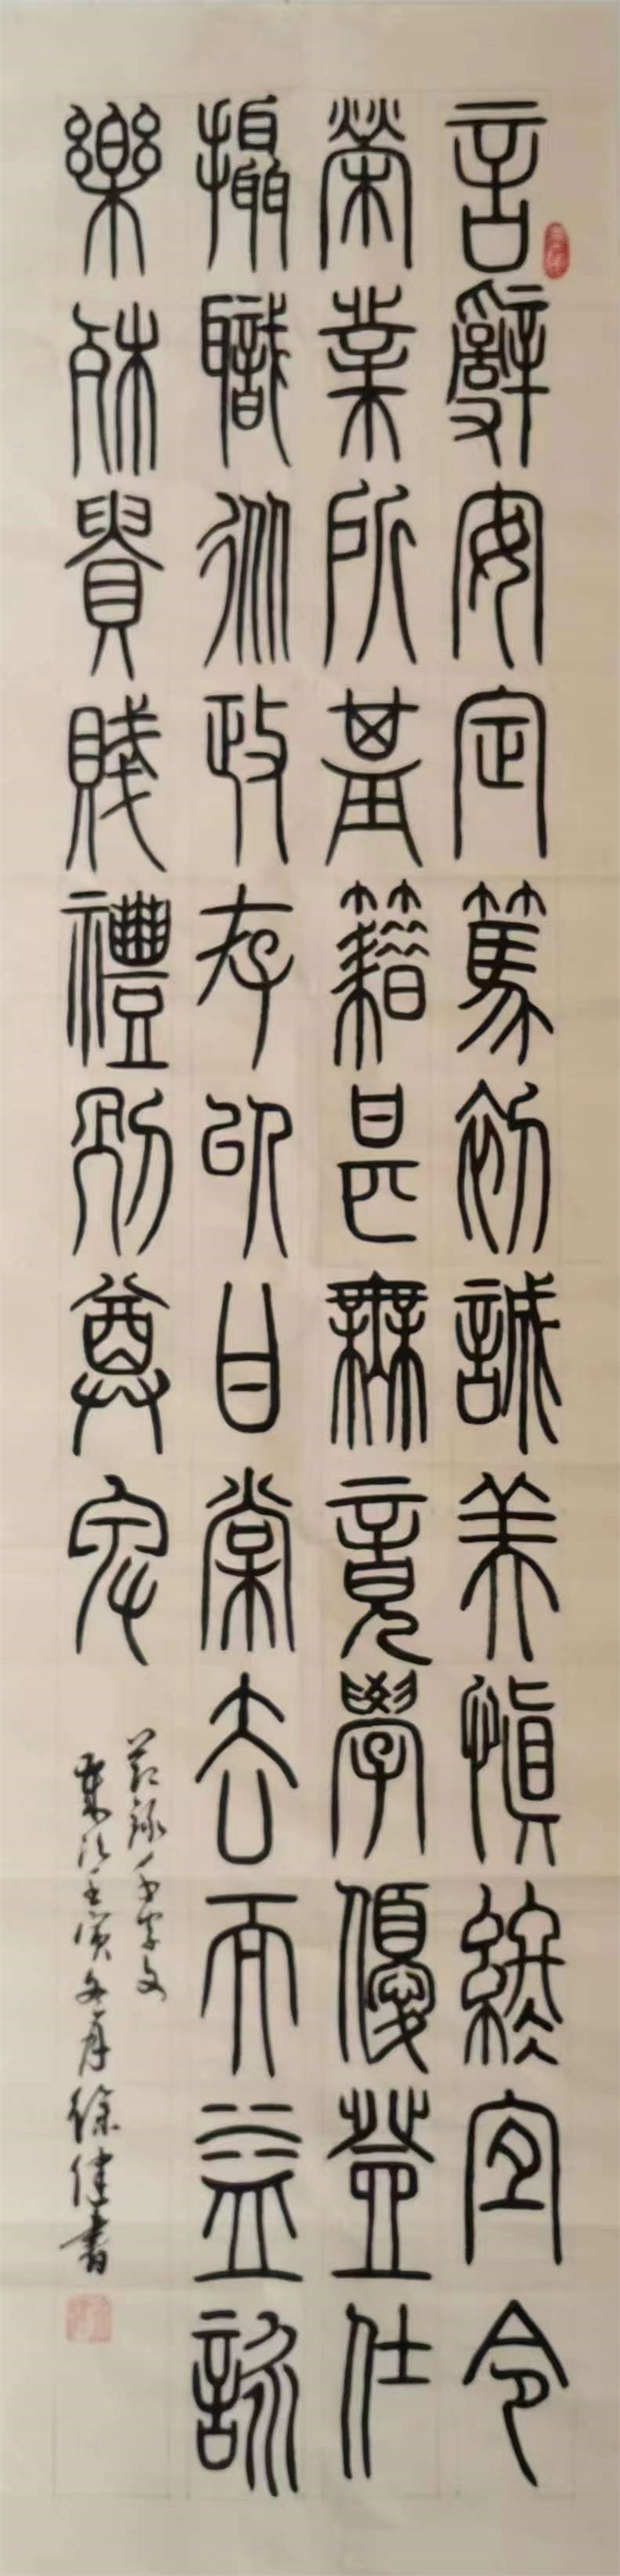 言辭安定篤初誠美慎終宜令
榮業所基籍甚無竟學優登仕
攝職從政存以甘棠去而益詠
樂殊貴賤禮別尊卑
節錄千字文
壬寅冬月徐健書